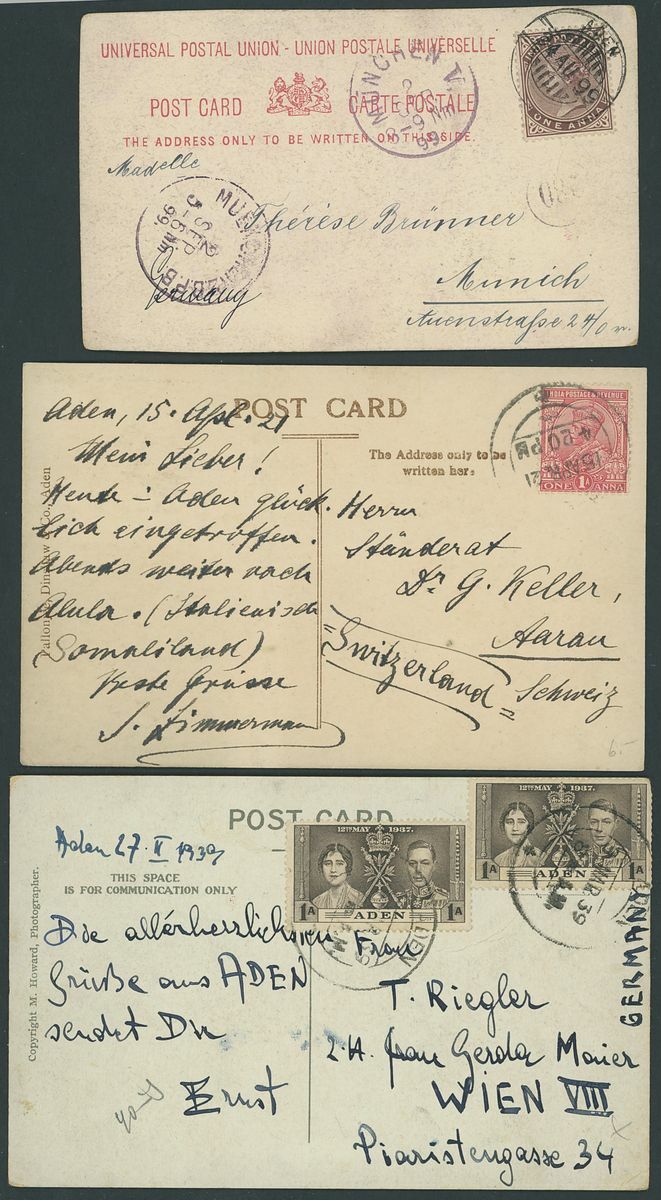 UNIVERSAL POSTAL UNION - UNION POSTALE UNIVERSELLE
ADEN
4 AU 99
ONE ANNA
MÜNCHEN V.
99
POST CARD CARTE POSTALE
THE ADDRESS ONLY TO BE WRITTEN ON THIS SIDE.
Madelle
180
2 SEP
99
Thérèse Brünner
Munich
Germany
Auenstraße 24/0 r.
POST CARD
Aden, 15. Apl. 21
INDIA POSTAGE & REVENUE
ONE 1 ANNA
4.20 PM
The Address only to be
written here
Mein Lieber!
Heute in Aden glück-
lich eingetroffen.
Abends weiter nach
Alula. (Italienisch
Somaliland)
Beste Grüsse
J. Zimmermann
Herrn
Ständerat
Dr G. Keller,
Aarau
=Switzerland= Schweiz
Pallonjee, Dinshaw & Co., Aden
6.-
POST CARD
12TH MAY 1937.
1A ADEN 1A
12TH MAY 1937.
1A ADEN 1A
MR 39
ADEN
Aden 27. II 1939
THIS SPACE
IS FOR COMMUNICATION ONLY
Die allerherzlichsten
Grüße aus ADEN
sendet Dir
Ernst
Frau
T. Riegler
z.H. Frau Gerda Maier
WIEN VIII
Piaristengasse 34
GERMANY
Copyright M. Howard, Photographer.